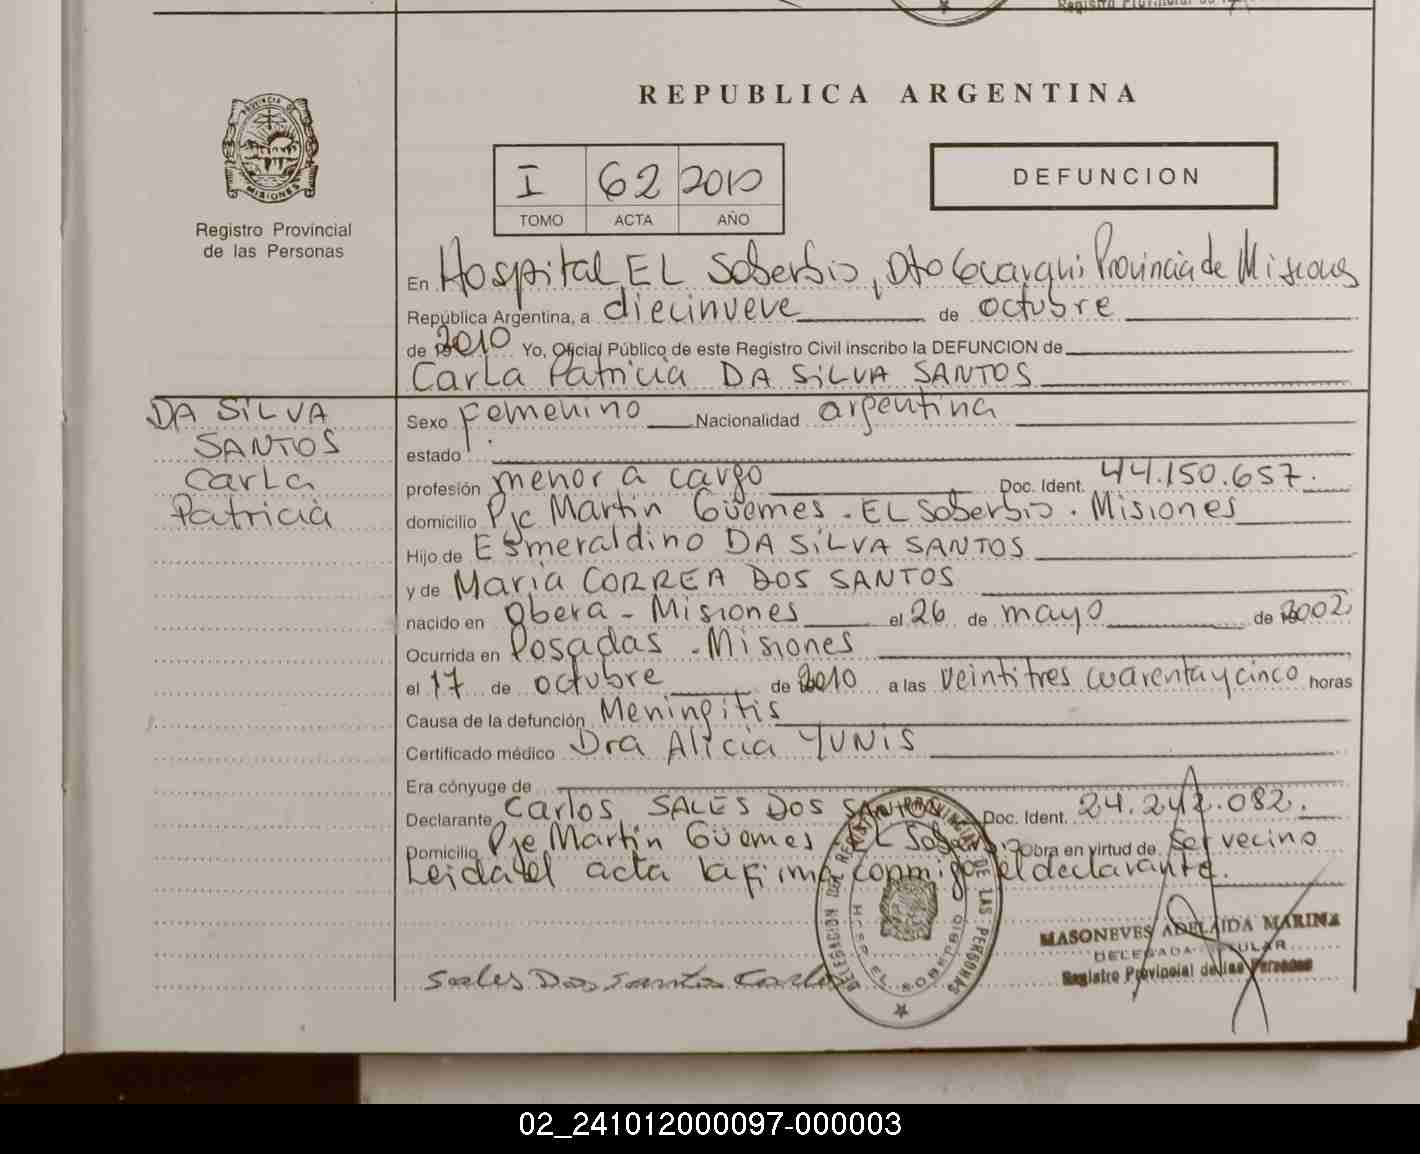 Registro Provincial de
REPUBLICA ARGENTINA
PROVINCIA DE
MISIONES
Registro Provincial
de las Personas
I 62 2010
TOMO ACTA AÑO
DEFUNCION
En Hospital EL Soberbio, Dto Guarani Provincia de Misiones
República Argentina, a diecinueve de octubre
de 2010 Yo, Oficial Público de este Registro Civil inscribo la DEFUNCION de
Carla Patricia DA SiLVA SANTOS
DA SiLVA
SANTOS
Carla
Patricia
Sexo femenino Nacionalidad argentina
estado
profesión menor a cargo Doc. Ident. 44.150.657.
domicilio Pje Martin Güemes - EL Soberbio - Misiones
Hijo de Esmeraldino DA SiLVA SANTOS
y de Maria CORREA DOS SANTOS
nacido en Obera - Misiones el 26 de mayo de 2002
Ocurrida en Posadas - Misiones
el 17 de octubre de 2010 a las veintitres cuarenta y cinco horas
Causa de la defunción Meningitis
Certificado médico Dra Alicia YUNiS
Era cónyuge de
Declarante Carlos SALES DOS SANTOS Doc. Ident. 24.242.082.
Domicilio Pje Martin Güemes EL Soberbio Obra en virtud de ser vecino
Leida el acta la firma conmigo el declarante.
DELEGACION DEL REGISTRO PROVINCIAL DE LAS PERSONAS
HOSP. EL SOBERBIO
MASONEVES ADELAIDA MARINA
DELEGADA TITULAR
Registro Provincial de las Personas
Sales Dos Santos Carlos
02_241012000097-000003